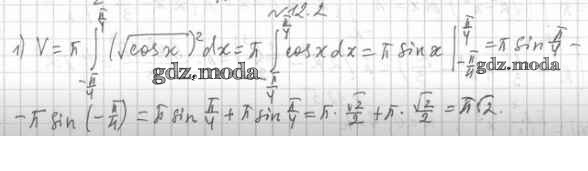 №12.2
1) V = π ∫_{-π/4}^{π/4} (√cosx)² dx = π ∫_{-π/4}^{π/4} cosx dx = π sin x |_{-π/4}^{π/4} = π sin π/4 -
gdz.moda gdz.moda
- π sin (-π/4) = π sin π/4 + π sin π/4 = π · √2/2 + π · √2/2 = π√2.